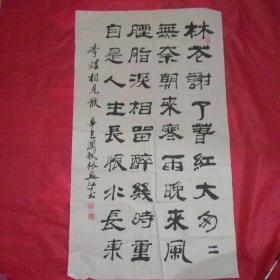 林花謝了春红大匆々
無奈朝来寒雨晚来風
胭脂淚相留醉幾時重
自是人生長恨水長東
李煜相見歡 辛巳蘭秋